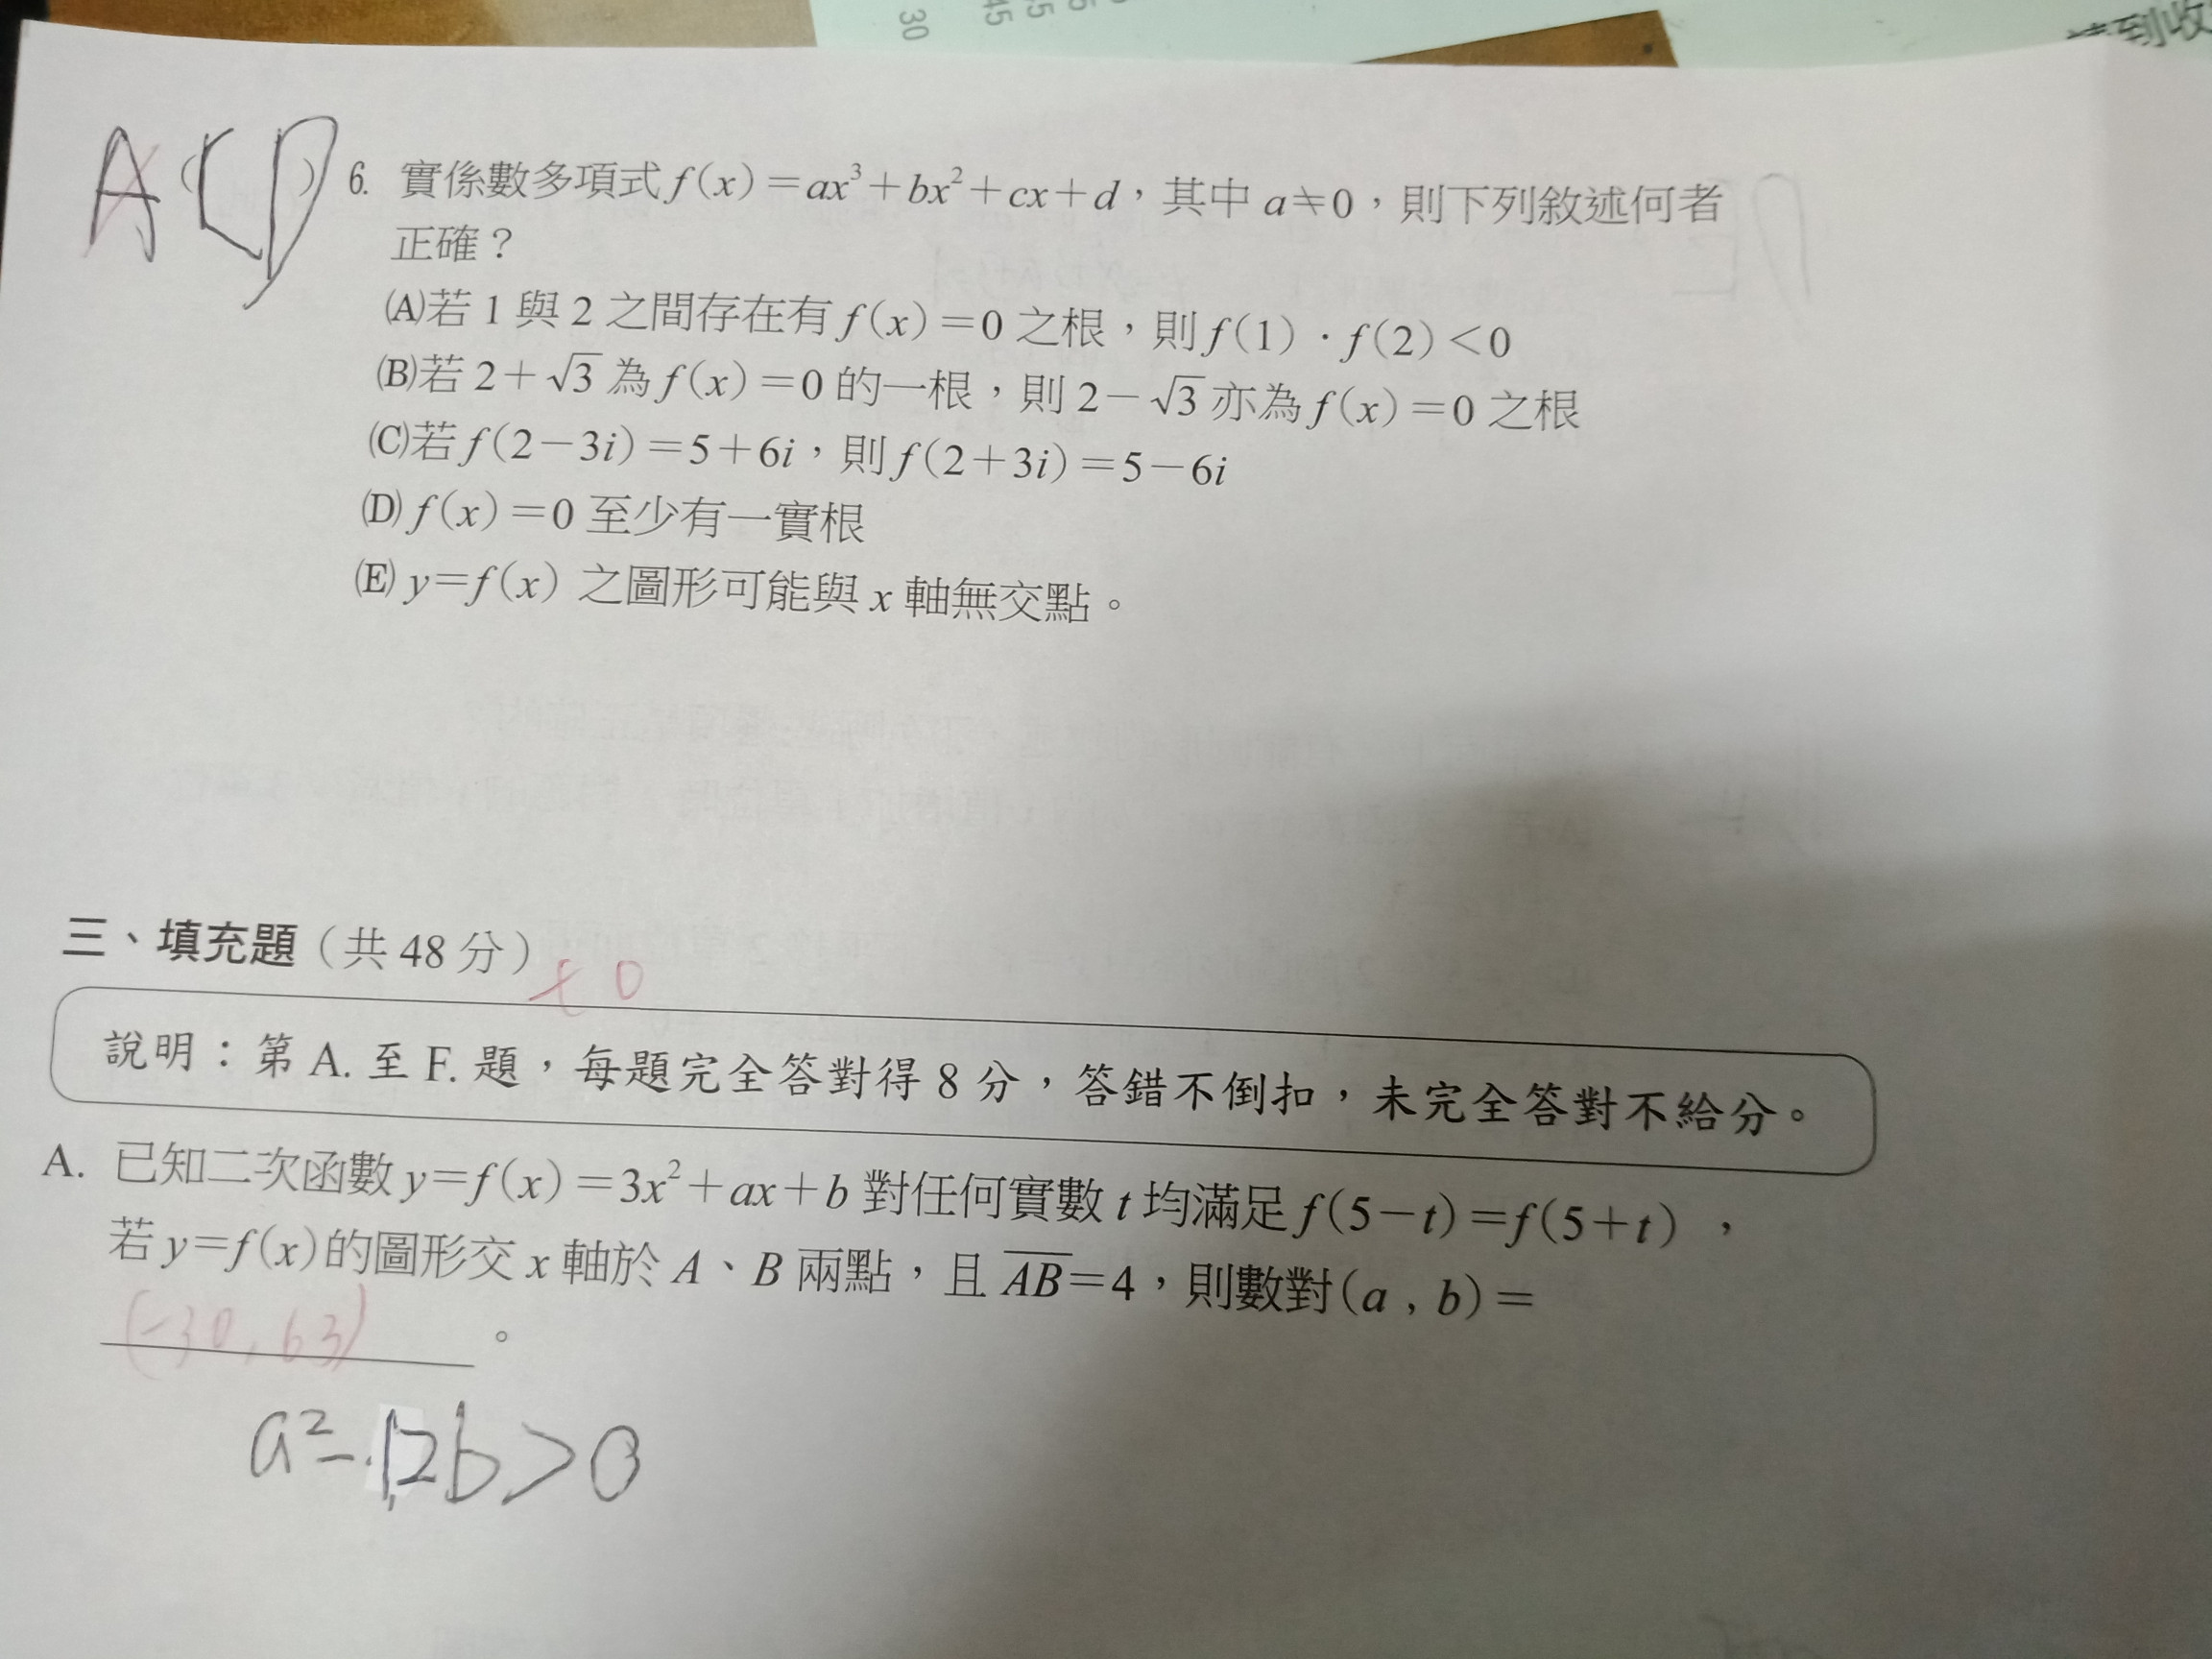 30 45 55
到收
ACD ( ) 6. 實係數多項式 f(x)=ax³+bx²+cx+d，其中 a≠0，則下列敘述何者
正確？
(A)若 1 與 2 之間存在有 f(x)=0 之根，則 f(1)·f(2)<0
(B)若 2+√3 為 f(x)=0 的一根，則 2-√3 亦為 f(x)=0 之根
(C)若 f(2-3i)=5+6i，則 f(2+3i)=5-6i
(D) f(x)=0 至少有一實根
(E) y=f(x) 之圖形可能與 x 軸無交點。
三、填充題（共 48 分）+0
說明：第 A. 至 F. 題，每題完全答對得 8 分，答錯不倒扣，未完全答對不給分。
A. 已知二次函數 y=f(x)=3x²+ax+b 對任何實數 t 均滿足 f(5-t)=f(5+t)，
若 y=f(x)的圖形交 x 軸於 A、B 兩點，且 AB=4，則數對(a, b)=
(-30, 63)。
a²-12b>0